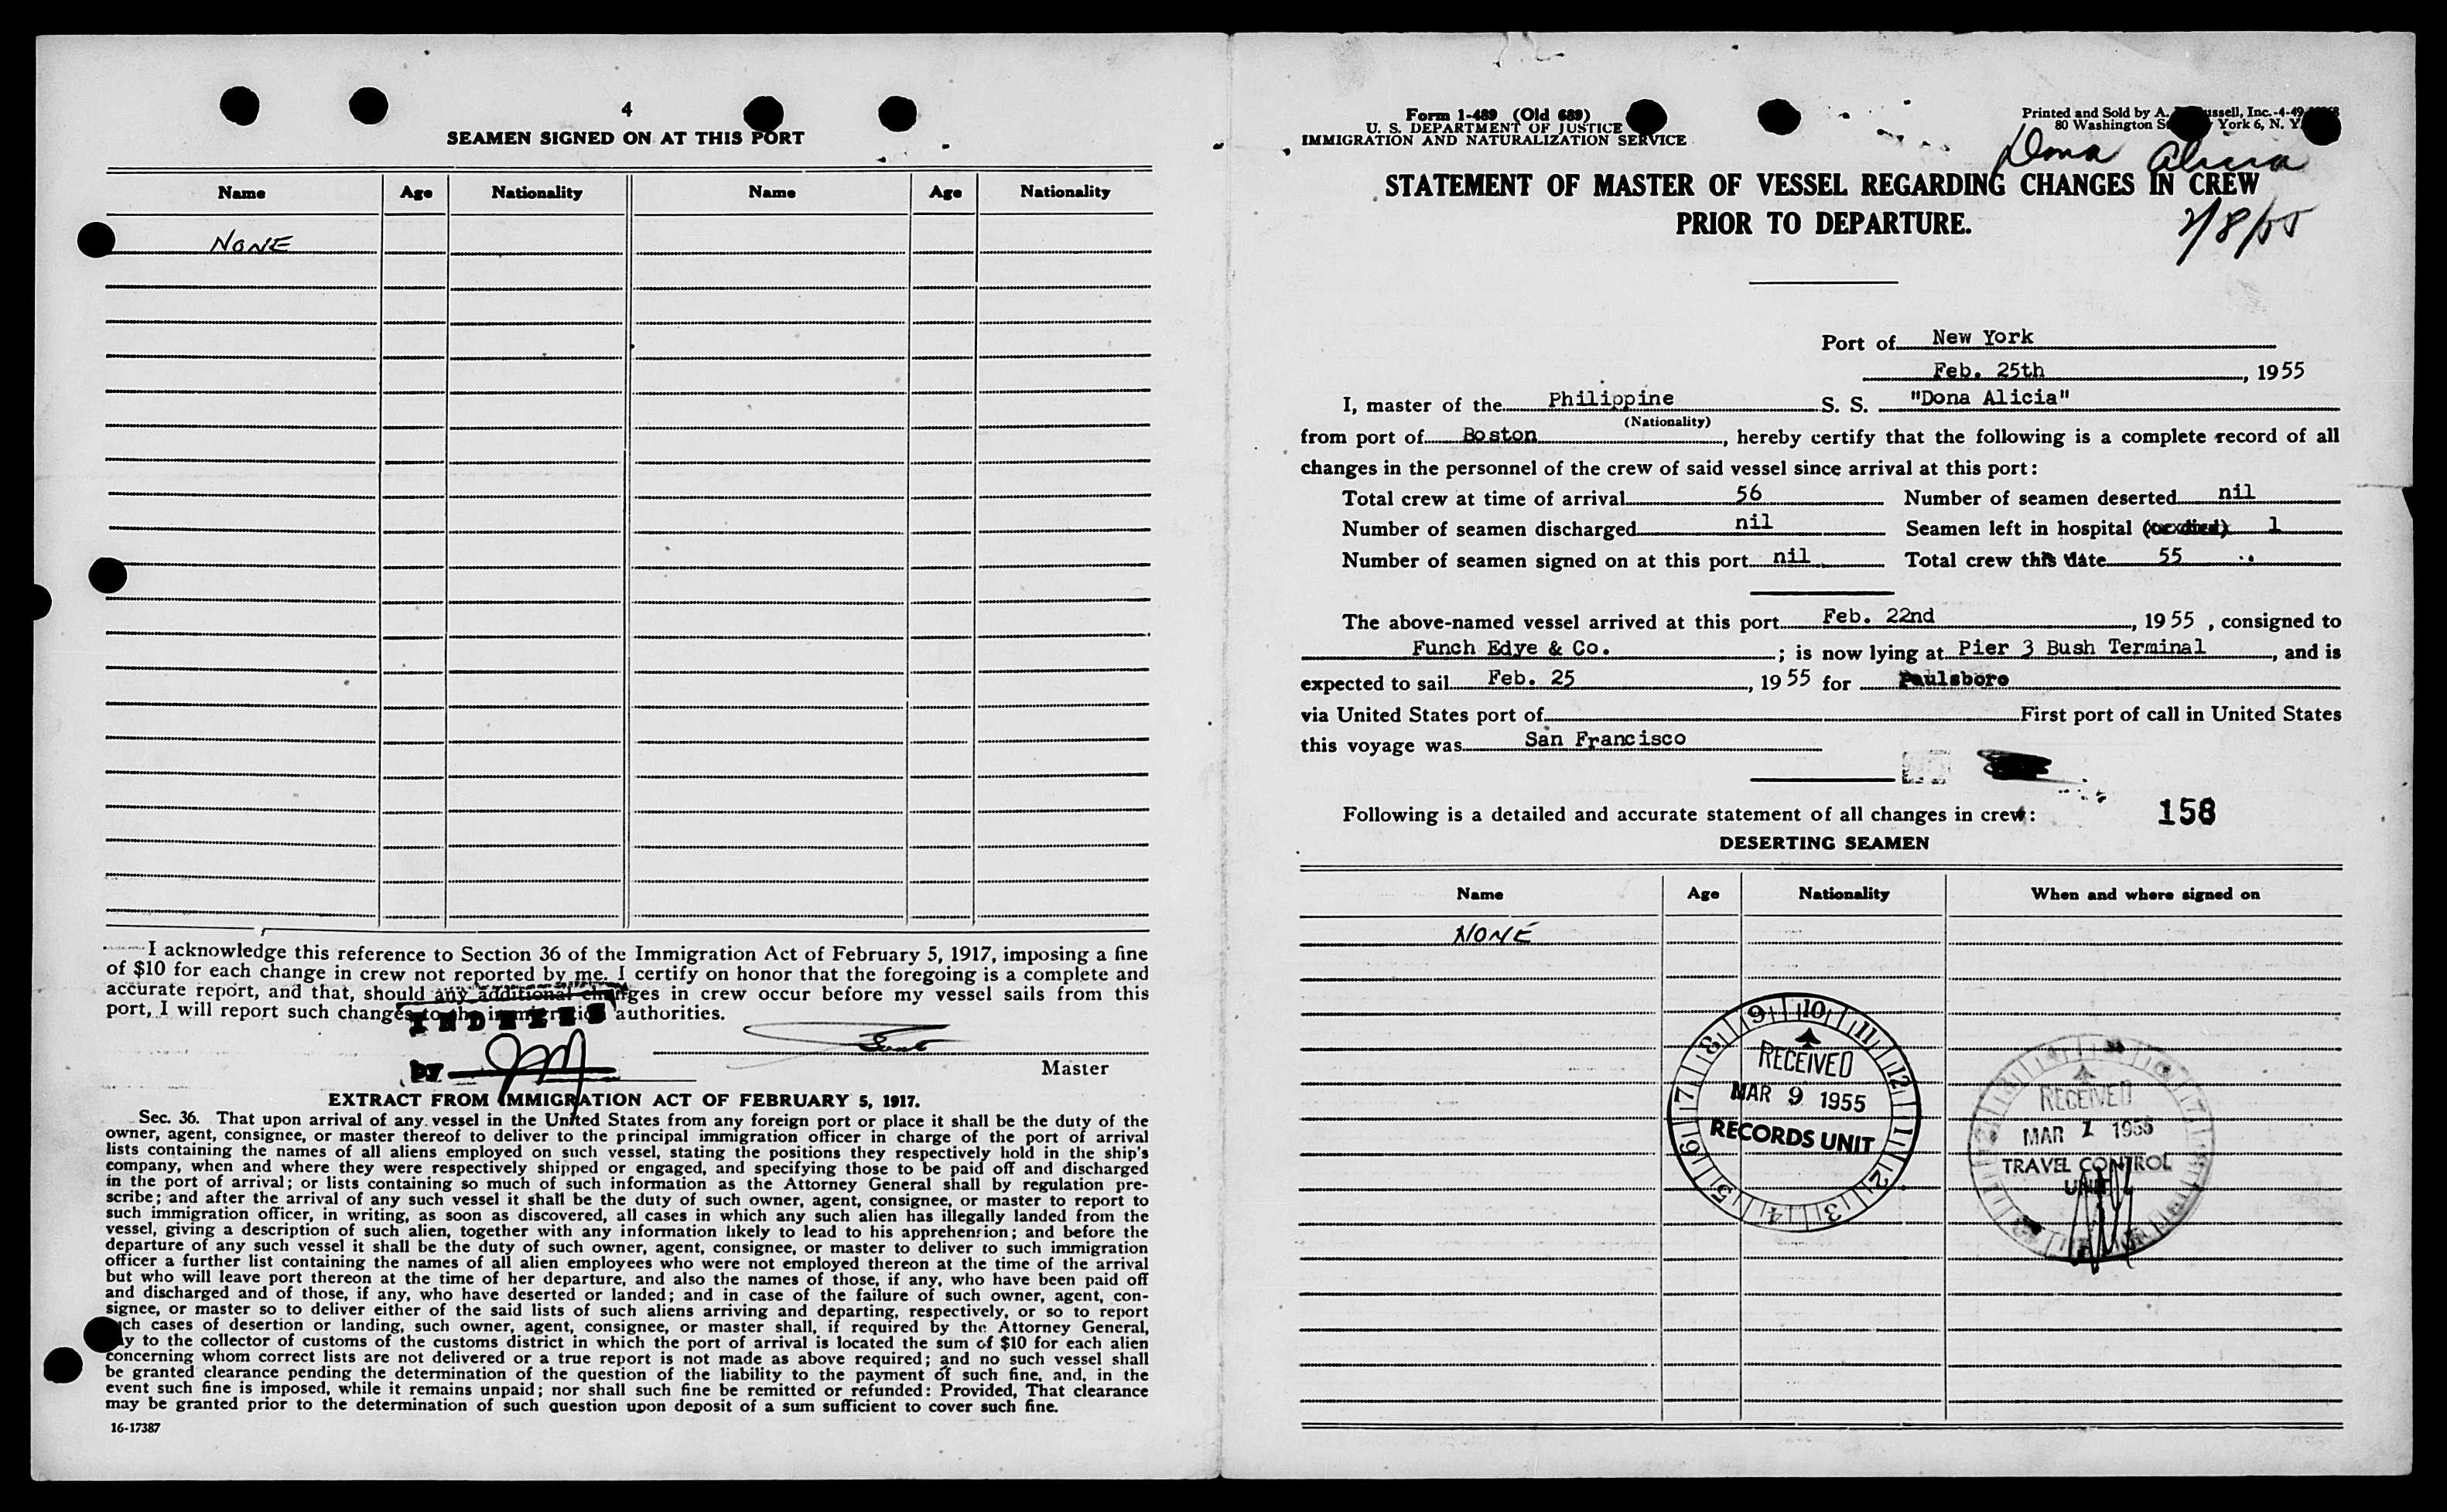 4
SEAMEN SIGNED ON AT THIS PORT
Name Age Nationality Name Age Nationality
NONE
I acknowledge this reference to Section 36 of the Immigration Act of February 5, 1917, imposing a fine
of $10 for each change in crew not reported by me. I certify on honor that the foregoing is a complete and
accurate report, and that, should any additional changes in crew occur before my vessel sails from this
port, I will report such changes to the immigration authorities.
INDEXED
BY JM
Master
EXTRACT FROM IMMIGRATION ACT OF FEBRUARY 5, 1917.
Sec. 36. That upon arrival of any vessel in the United States from any foreign port or place it shall be the duty of the
owner, agent, consignee, or master thereof to deliver to the principal immigration officer in charge of the port of arrival
lists containing the names of all aliens employed on such vessel, stating the positions they respectively hold in the ship's
company, when and where they were respectively shipped or engaged, and specifying those to be paid off and discharged
in the port of arrival; or lists containing so much of such information as the Attorney General shall by regulation pre-
scribe; and after the arrival of any such vessel it shall be the duty of such owner, agent, consignee, or master to report to
such immigration officer, in writing, as soon as discovered, all cases in which any such alien has illegally landed from the
vessel, giving a description of such alien, together with any information likely to lead to his apprehension; and before the
departure of any such vessel it shall be the duty of such owner, agent, consignee, or master to deliver to such immigration
officer a further list containing the names of all alien employees who were not employed thereon at the time of the arrival
but who will leave port thereon at the time of her departure, and also the names of those, if any, who have been paid off
and discharged and of those, if any, who have deserted or landed; and in case of the failure of such owner, agent, con-
signee, or master so to deliver either of the said lists of such aliens arriving and departing, respectively, or so to report
such cases of desertion or landing, such owner, agent, consignee, or master shall, if required by the Attorney General,
pay to the collector of customs of the customs district in which the port of arrival is located the sum of $10 for each alien
concerning whom correct lists are not delivered or a true report is not made as above required; and no such vessel shall
be granted clearance pending the determination of the question of the liability to the payment of such fine, and, in the
event such fine is imposed, while it remains unpaid; nor shall such fine be remitted or refunded: Provided, That clearance
may be granted prior to the determination of such question upon deposit of a sum sufficient to cover such fine.
16-17387
Form 1-489 (Old 689)
U. S. DEPARTMENT OF JUSTICE
IMMIGRATION AND NATURALIZATION SERVICE
Printed and Sold by A. ussell, Inc.-4-49
80 Washington St York 6, N. Y.
Dona Alicia
STATEMENT OF MASTER OF VESSEL REGARDING CHANGES IN CREW
PRIOR TO DEPARTURE.
2/8/55
Port of New York
Feb. 25th, 1955
I, master of the Philippine S. S. "Dona Alicia"
(Nationality)
from port of Boston, hereby certify that the following is a complete record of all
changes in the personnel of the crew of said vessel since arrival at this port:
Total crew at time of arrival 56 Number of seamen deserted nil
Number of seamen discharged nil Seamen left in hospital (or died) 1
Number of seamen signed on at this port nil Total crew this date 55
The above-named vessel arrived at this port Feb. 22nd, 1955, consigned to
Funch Edye & Co.; is now lying at Pier 3 Bush Terminal, and is
expected to sail Feb. 25, 1955 for Paulsboro
via United States port of First port of call in United States
this voyage was San Francisco
Following is a detailed and accurate statement of all changes in crew: 158
DESERTING SEAMEN
Name Age Nationality When and where signed on
NONE
9 10 11 12 1 2 3 4 5 6 7 8
RECEIVED
MAR 9 1955
RECORDS UNIT
RECEIVED
MAR 1 1955
TRAVEL CONTROL
UNIT